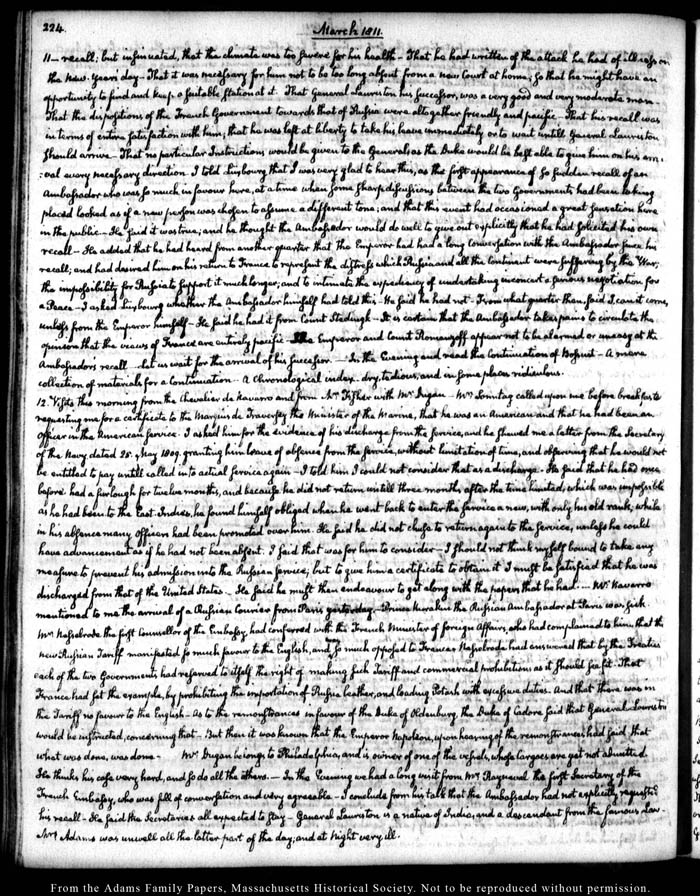 224.
March 1811.
11— recall; but insinuated, that the climate was too severe for his health — That he had written of the attack he had of illness on
the New-Years day — That it was necessary for him not to be too long absent from a new Court at home, so that he might have an
opportunity to find and keep a suitable station at it. That General Lauriston his successor, was a very good and very moderate man.
That the dispositions of the French Government towards that of Russia were altogether friendly and pacific. That his recall was
in terms of entire satisfaction with him; that he was left at liberty to take his leave immediately or to wait until General Lauriston
should arrive — That no particular Instructions would be given to the General, as the Duke would be best able to give him on his arri-
:val every necessary direction. I told Luxbourg that I was very glad to hear this, as the first appearance of so sudden recall of an
Ambassador who was so much in favour here, at a time when some sharp discussions between the two Governments had been taking
place looked as if a new person was chosen to assume a different tone; and that this event had occasioned a great sensation here
in the public — He said it was true; and he thought the Ambassador would do well to give out explicitly that he had solicited his own
recall — He added that he had heard from another quarter that the Emperor had had a long Conversation with the Ambassador since his
recall, and had desired him on his return to France to represent the distress which Russia and all the Continent were suffering by the War;
the impossibility for Russia to support it much longer; and to intimate the expediency of undertaking in concert a serious negotiation for
a Peace — I asked Luxbourg whether the Ambassador himself had told this — He said he had not — From what quarter then said I can it come,
unless from the Emperor himself — He said he had it from Count Stedingk — It is certain that the Ambassador takes pains to circulate the
opinion that the views of France are entirely pacific. The Emperor and Count Romanzoff appear not to be alarmed or uneasy at the
Ambassadors recall — let us wait for the arrival of his successor. — In the Evening and read the Continuation of Bossuet — A mere
collection of materials for a Continuation — A Chronological index — dry, tedious, and in some places ridiculous.
12. Visits this morning from the Chevalier de Navarro and from Mr Fisher with Mr Dugan — Mr Sonntag called upon me before breakfast
requesting me for a certificate to the Marquis de Traversay the Minister of the Marine, that he was an American and that he had been an
officer in the American service. I asked him for the evidence of his discharge from the service, and he shewed me a letter from the Secretary
of the Navy dated 25. May 1809. granting him leave of absence from the service, without limitation of time, and observing that he would not
be entitled to pay untill called into actual service again — I told him I could not consider that as a discharge. He said that he had once
before had a furlough for twelve months, and because he did not return untill three months after the time limited, which was impossible
as he had been to the East-Indies, he found himself obliged when he went back to enter the service a new, with only his old rank, while
in his absence many officers had been promoted over him. He said he did not chuse to return again to the service, unless he could
have advancement as if he had not been absent. I said that was for him to consider — I should not think myself bound to take any
measure to prevent his admission into the Russian service, but to give him a certificate to obtain it I must be satisfied that he was
discharged from that of the United States. He said he must then endeavour to get along with the papers that he had. — Mr Navarro
mentioned to me the arrival of a Russian Courier from Paris yesterday — Prince Kurakin the Russian Ambassador at Paris was sick.
Mr Nesselrode the first Counsellor of the Embassy, had conferred with the French Minister of foreign Affairs, who had complained to him, that the
new Russian Tariff manifested so much favour to the English, and so much opposed to France. Nesselrode had answered that by the Treaties
each of the two Governments had reserved to itself the right of making such Tariff and commercial prohibitions as it should see fit. That
France had set the example, by prohibiting the importation of Russia leather, and loading Potash with excessive duties. And that there was in
the Tariff no favour to the English — As to the remonstrances in favour of the Duke of Oldenburg, the Duke of Cadore said that General Lauriston
would be instructed, concerning that — But then it was known that the Emperor Napoleon, upon hearing of the remonstrances had said, that
what was done, was done — Mr Dugan belongs to Philadelphia, and is owner of one of the vessels, whose cargoes are yet not admitted.
He thinks his case very hard, and so do all the others. — In the Evening we had a long visit from Mr Rayneval the first Secretary of the
French Embassy, who was full of conversation and very agreeable — I conclude from his talk that the Ambassador had not explicitly requested
his recall — He said the Secretaries all expected to stay — General Lauriston is a native of India, and a descendant from the famous Law.
Mrs Adams was unwell all the latter part of the day; and at Night very ill.
From the Adams Family Papers, Massachusetts Historical Society. Not to be reproduced without permission.